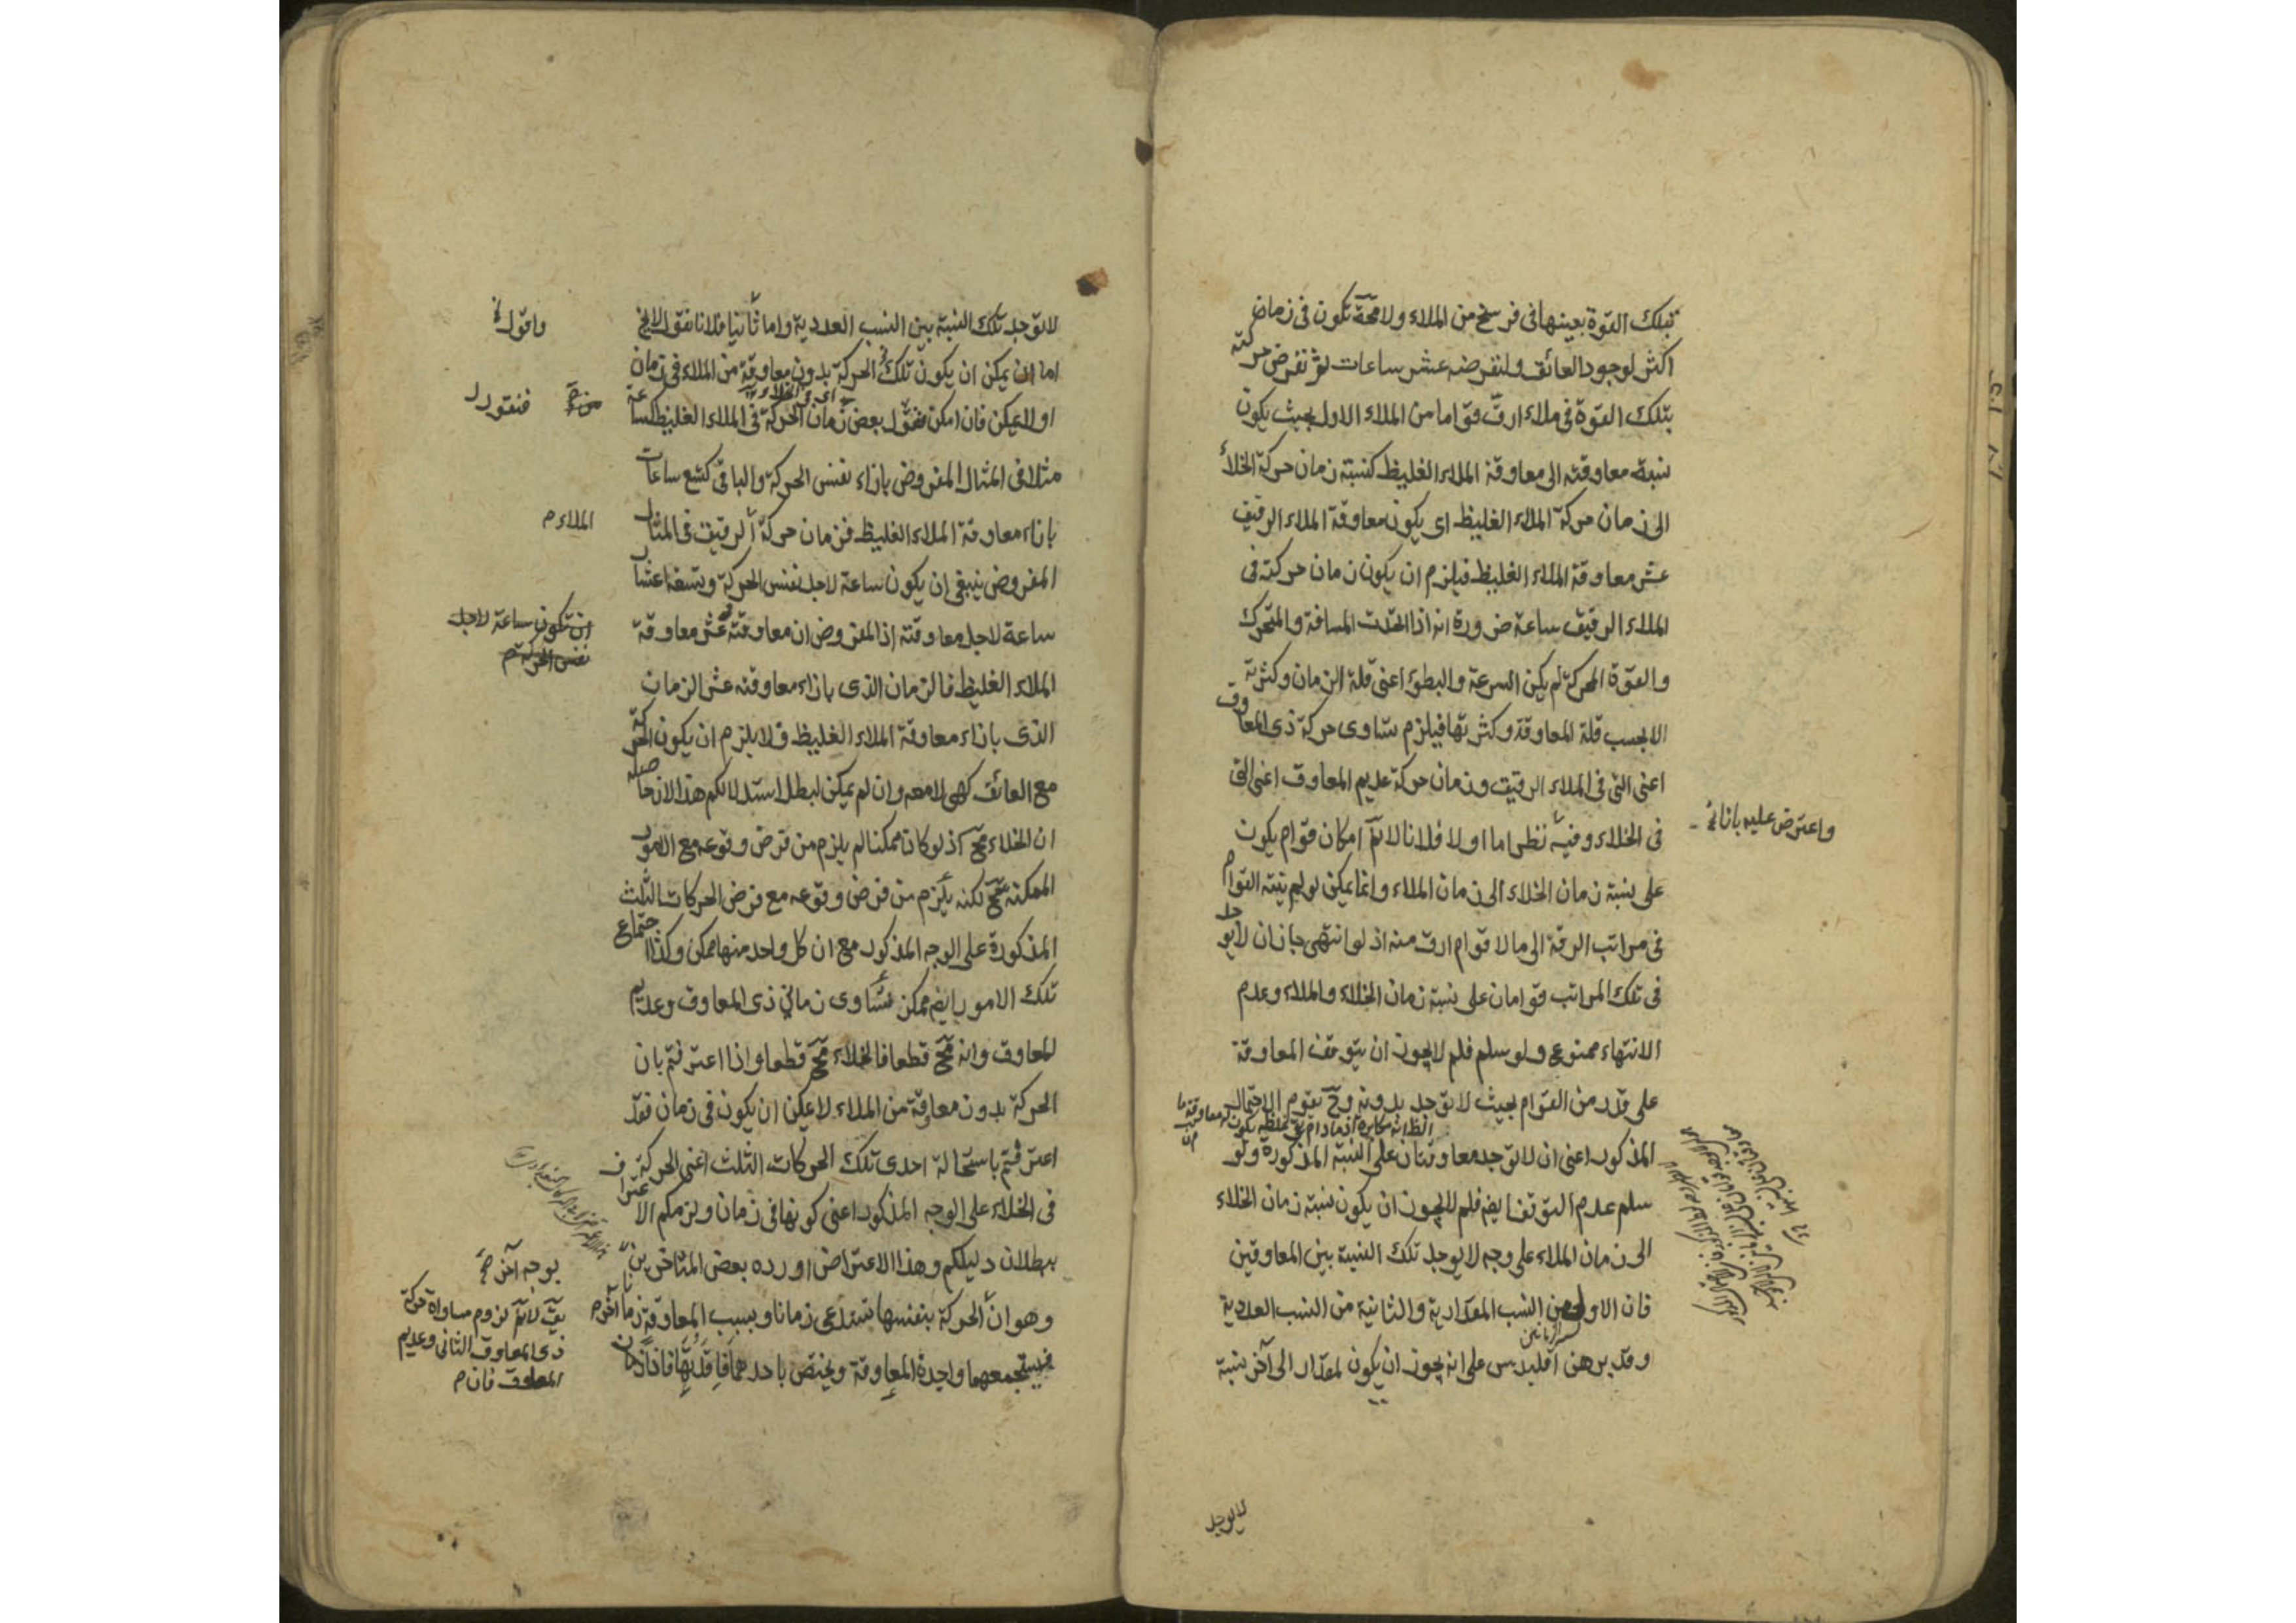 بتلك القوة بعينها فى فرسخ من الملاء ولا محة تكون فى زمان
اكثر لوجود العائق ولنفرضه عشر ساعات ثم نفرض حركته
بتلك القوة فى ملاء ارق قواما من الملاء الاول بحيث يكون
نسبة معاوقته الى معاوقة الملاء الغليظ كنسبة زمان حركة الخلأ
الى زمان حركة الملاء الغليظ اى يكون معاوقة الملاء الرقيق
عشر معاوقة الملاء الغليظ فيلزم ان يكون زمان حركته فى
الملاء الرقيق ساعة ضرورة انه اذا اتحدت المسافة والمتحرك
والقوة المحركة لم يكن السرعة والبطوء اعنى قلة الزمان وكثرته
الا بحسب قلة المعاوقة وكثرتها فيلزم تساوى حركة ذى المعاوق
اعنى التى فى الملاء الرقيق وزمان حركة عديم المعاوق اعنى التى
فى الخلاء وفيه نظر اما اولا فلانا لانم امكان قوام يكون
على نسبة زمان الخلاء الى زمان الملاء وانما يمكن لو لم ينته القوام
فى مراتب الرقة الى ما لا قوام ارق منه اذ لو انتهى جاز ان لا يوجد
فى تلك المراتب قوامان على نسبة زمان الخلاء والملاء وعدم
الانتهاء ممنوع ولو سلم فلم لا يجوز ان يتوقف المعاوقة
على قدر من القوام بحيث لا توجد بدونه وح يقوم الاحتمال
المذكور اعنى ان لا توجد معاوقتان على النسبة المذكورة ولو
سلم عدم التوقف ايضا فلم لا يجوز ان يكون نسبة زمان الخلاء
الى زمان الملاء على وجه لا يوجد تلك النسبة بين المعاوقتين
فان الاولى من النسب المقدارية والثانية من النسب العددية
وقد برهن اقليدس على انه يجوز ان يكون لمقدار الى آخر نسبة
واعترض عليه بانا
لا يوجد
لا توجد تلك النسبة بين النسب العددية واما ثانيا فلانا نقول لا يخ
اما ان يمكن ان يكون تلك الحركة بدون معاوقة من الملاء فى زمان
او لا يمكن فان امكن فنقول بعض زمان الحركة فى الملاء الغليظ كساعة
مثلا فى المثال المفروض بازاء نفس الحركة والباقى كتسع ساعات
بازاء معاوقة الملاء الغليظ فزمان حركة الرقيق فى المثال
المفروض ينبغى ان يكون ساعة لاجل نفس الحركة وتسعة اعشار
ساعة لاجل معاوقته اذ المفروض ان معاوقته عشر معاوقة
الملاء الغليظ فالزمان الذى بازاء معاوقته عشر الزمان
الذى بازاء معاوقة الملاء الغليظ فلا يلزم ان يكون الحركة
مع العائق كهى لا معه وان لم يمكن لبطل استدلالكم هذا لان حاصله
ان الخلاء مح اذ لو كان ممكنا لم يلزم من فرض وقوعه مع الامور
الممكنة مح لكنه يلزم من فرض وقوعه مع فرض الحركات الثلث
المذكورة على الوجه المذكور مع ان كل واحد منها ممكن وكذا اجتماع
تلك الامور ايضا ممكن تساوى زمانى ذى المعاوق وعديم
المعاوق وانه مح قطعا فالخلاء مح قطعا واذا اعترفتم بان
الحركة بدون معاوقة من الملاء لا يمكن ان يكون فى زمان فقد
اعترفتم باستحالة احدى تلك الحركات الثلث اعنى الحركة
فى الخلاء على الوجه المذكور اعنى كونها فى زمان ولزمكم الاعتراف
ببطلان دليلكم وهذا الاعتراض اورده بعض المتأخرين
وهو ان الحركة بنفسها تستدعى زمانا وبسبب المعاوقة زمانا آخر
فيستجمعهما واجدة المعاوقة ويختص باحدهما فاقدتها فاذا زمان
واقول
فنقول
الملاء م
ان تكون ساعة لاجل
نفس الحركة م
بوجه آخر صح
يق لانم لزوم مساواة حركة
ذى المعاوق الثانى وعديم
المعاوق فان م